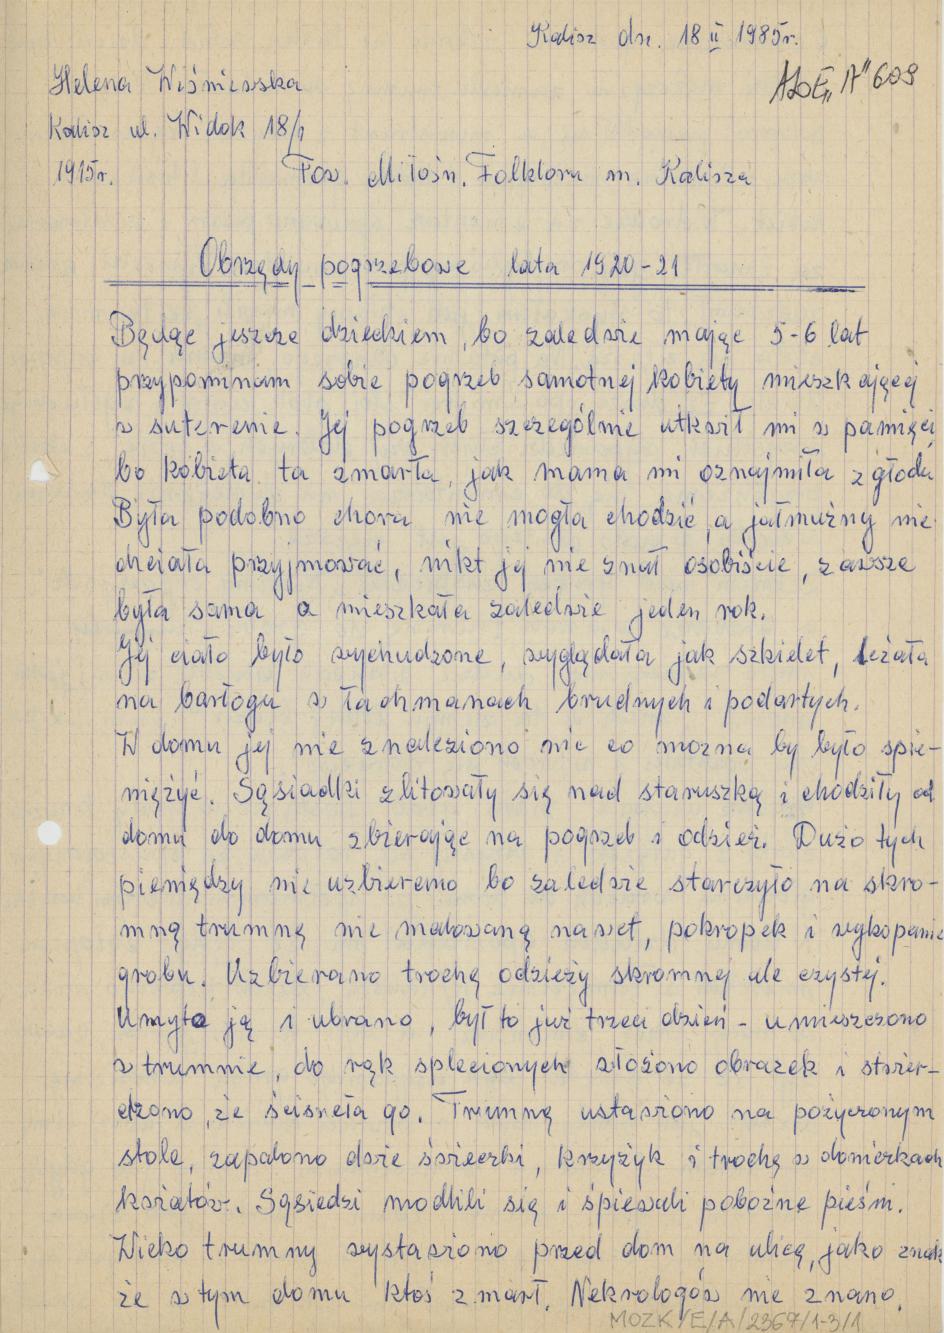 Kalisz dn. 18 II 1985r.
ALoE „A" 609
Helena Wiśniewska
Kalisz ul. Widok 18/1
1915r. Tow. Miłośn. Folkloru m. Kalisza
Obrzędy pogrzebowe lata 1920-21
Będąc jeszcze dzieckiem, bo zaledwie mając 5-6 lat
przypominam sobie pogrzeb samotnej kobiety mieszkającej
w suterenie. Jej pogrzeb szczególnie utkwił mi w pamięci,
bo kobieta ta zmarła, jak mama mi oznajmiła z głodu
Była podobno chora nie mogła chodzić, a jałmużny nie
chciała przyjmować, nikt jej nie znał osobiście, zawsze
była sama a mieszkała zaledwie jeden rok.
Jej ciało było wychudzone, wyglądała jak szkielet, leżała
na barłogu w łachmanach brudnych i podartych.
W domu jej nie znaleziono nic co można by było spie-
niężyć. Sąsiadki zlitowały się nad staruszką i chodziły od
domu do domu zbierając na pogrzeb i odzież. Dużo tych
pieniędzy nie uzbierano bo zaledwie starczyło na skro-
mną trumnę nie malowaną nawet, pokropek i wykopanie
grobu. Uzbierano trochę odzieży skromnej ale czystej.
Umyto ją i ubrano, był to już trzeci dzień - umieszczono
w trumnie, do rąk splecionych włożono obrazek i stwier-
dzono, że ścisneła go. Trumnę ustawiono na pożyczonym
stole, zapalono dwie świeczki, krzyżyk i trochę w doniczkach
kwiatów. Sąsiedzi modlili się i śpiewali pobożne pieśni.
Wieko trumny wystawiono przed dom na ulicę, jako znak
że w tym domu ktoś zmarł. Nekrologów nie znano.
MOZK/E/A/2367/1-3/1